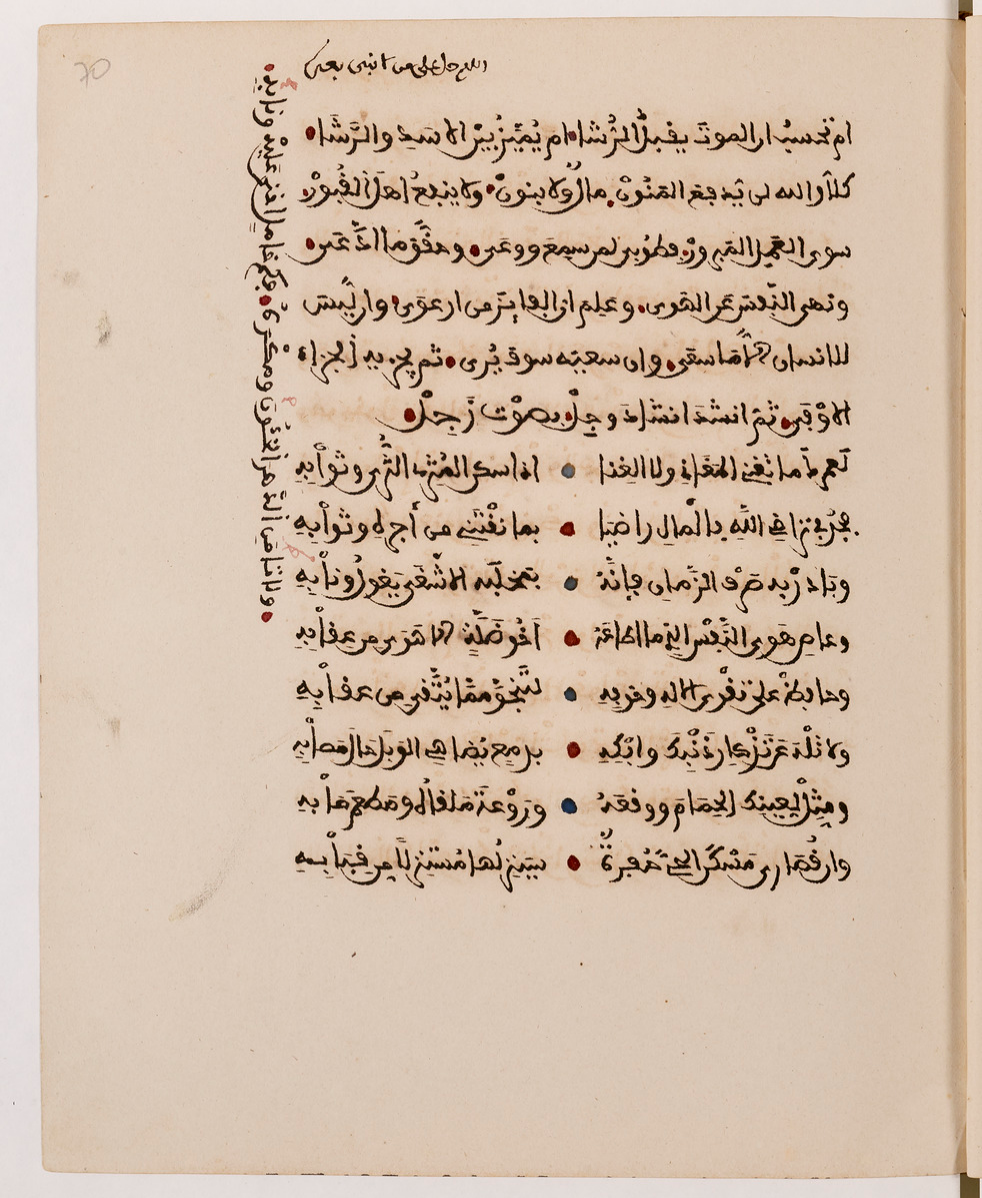 اللهم صل على من لا نبي بعده
ام تحسب ان الموت يقبل الرشا ام يميز بين الاسد والرشا
كلا والله لن يدفع المنون مال ولا بنون ولا ينفع اهل القبور
سوى العمل المبرور فطوبى لمن سمع ووعى وحقق ما ادعى
ونهى النفس عن الهوى وعلم ان الفائز من ارعوى وان ليس
للانسان الا ما سعى وان سعيه سوف يرى ثم يجزيه الجزاء
الاوفى ثم انشد انشاد وجل بصوت زجل
لعمرك ما تغني المغاني ولا الغنا اذا سكن المثري الثرى وثوا به
فجد في مراضي الله بالمال راضيا بما تقتني من أجره وثوابه
وبادر به صرف الزمان فانه بمخلبه الاشغى يغول ونابه
وعاص هوى النفس الذي ما اطاعه أخو ضلة الا هوى من عقابه
وحافظ على تقوى الاله وخوفه لتنجو مما يتقى من عقابه
ولا تله عن تذكار ذنبك وابكه بدمع يضاهي الوبل حال مصابه
ومثل لعينيك الحمام ووقعه وروعة ملقاه ومطعم صابه
وان قصارى مسكن الحي حفرة سينزلها مستنزلا من قبابه
ولا تامن الدهر الخئون ومكره فكم خامل اخنى عليه ونابه
70